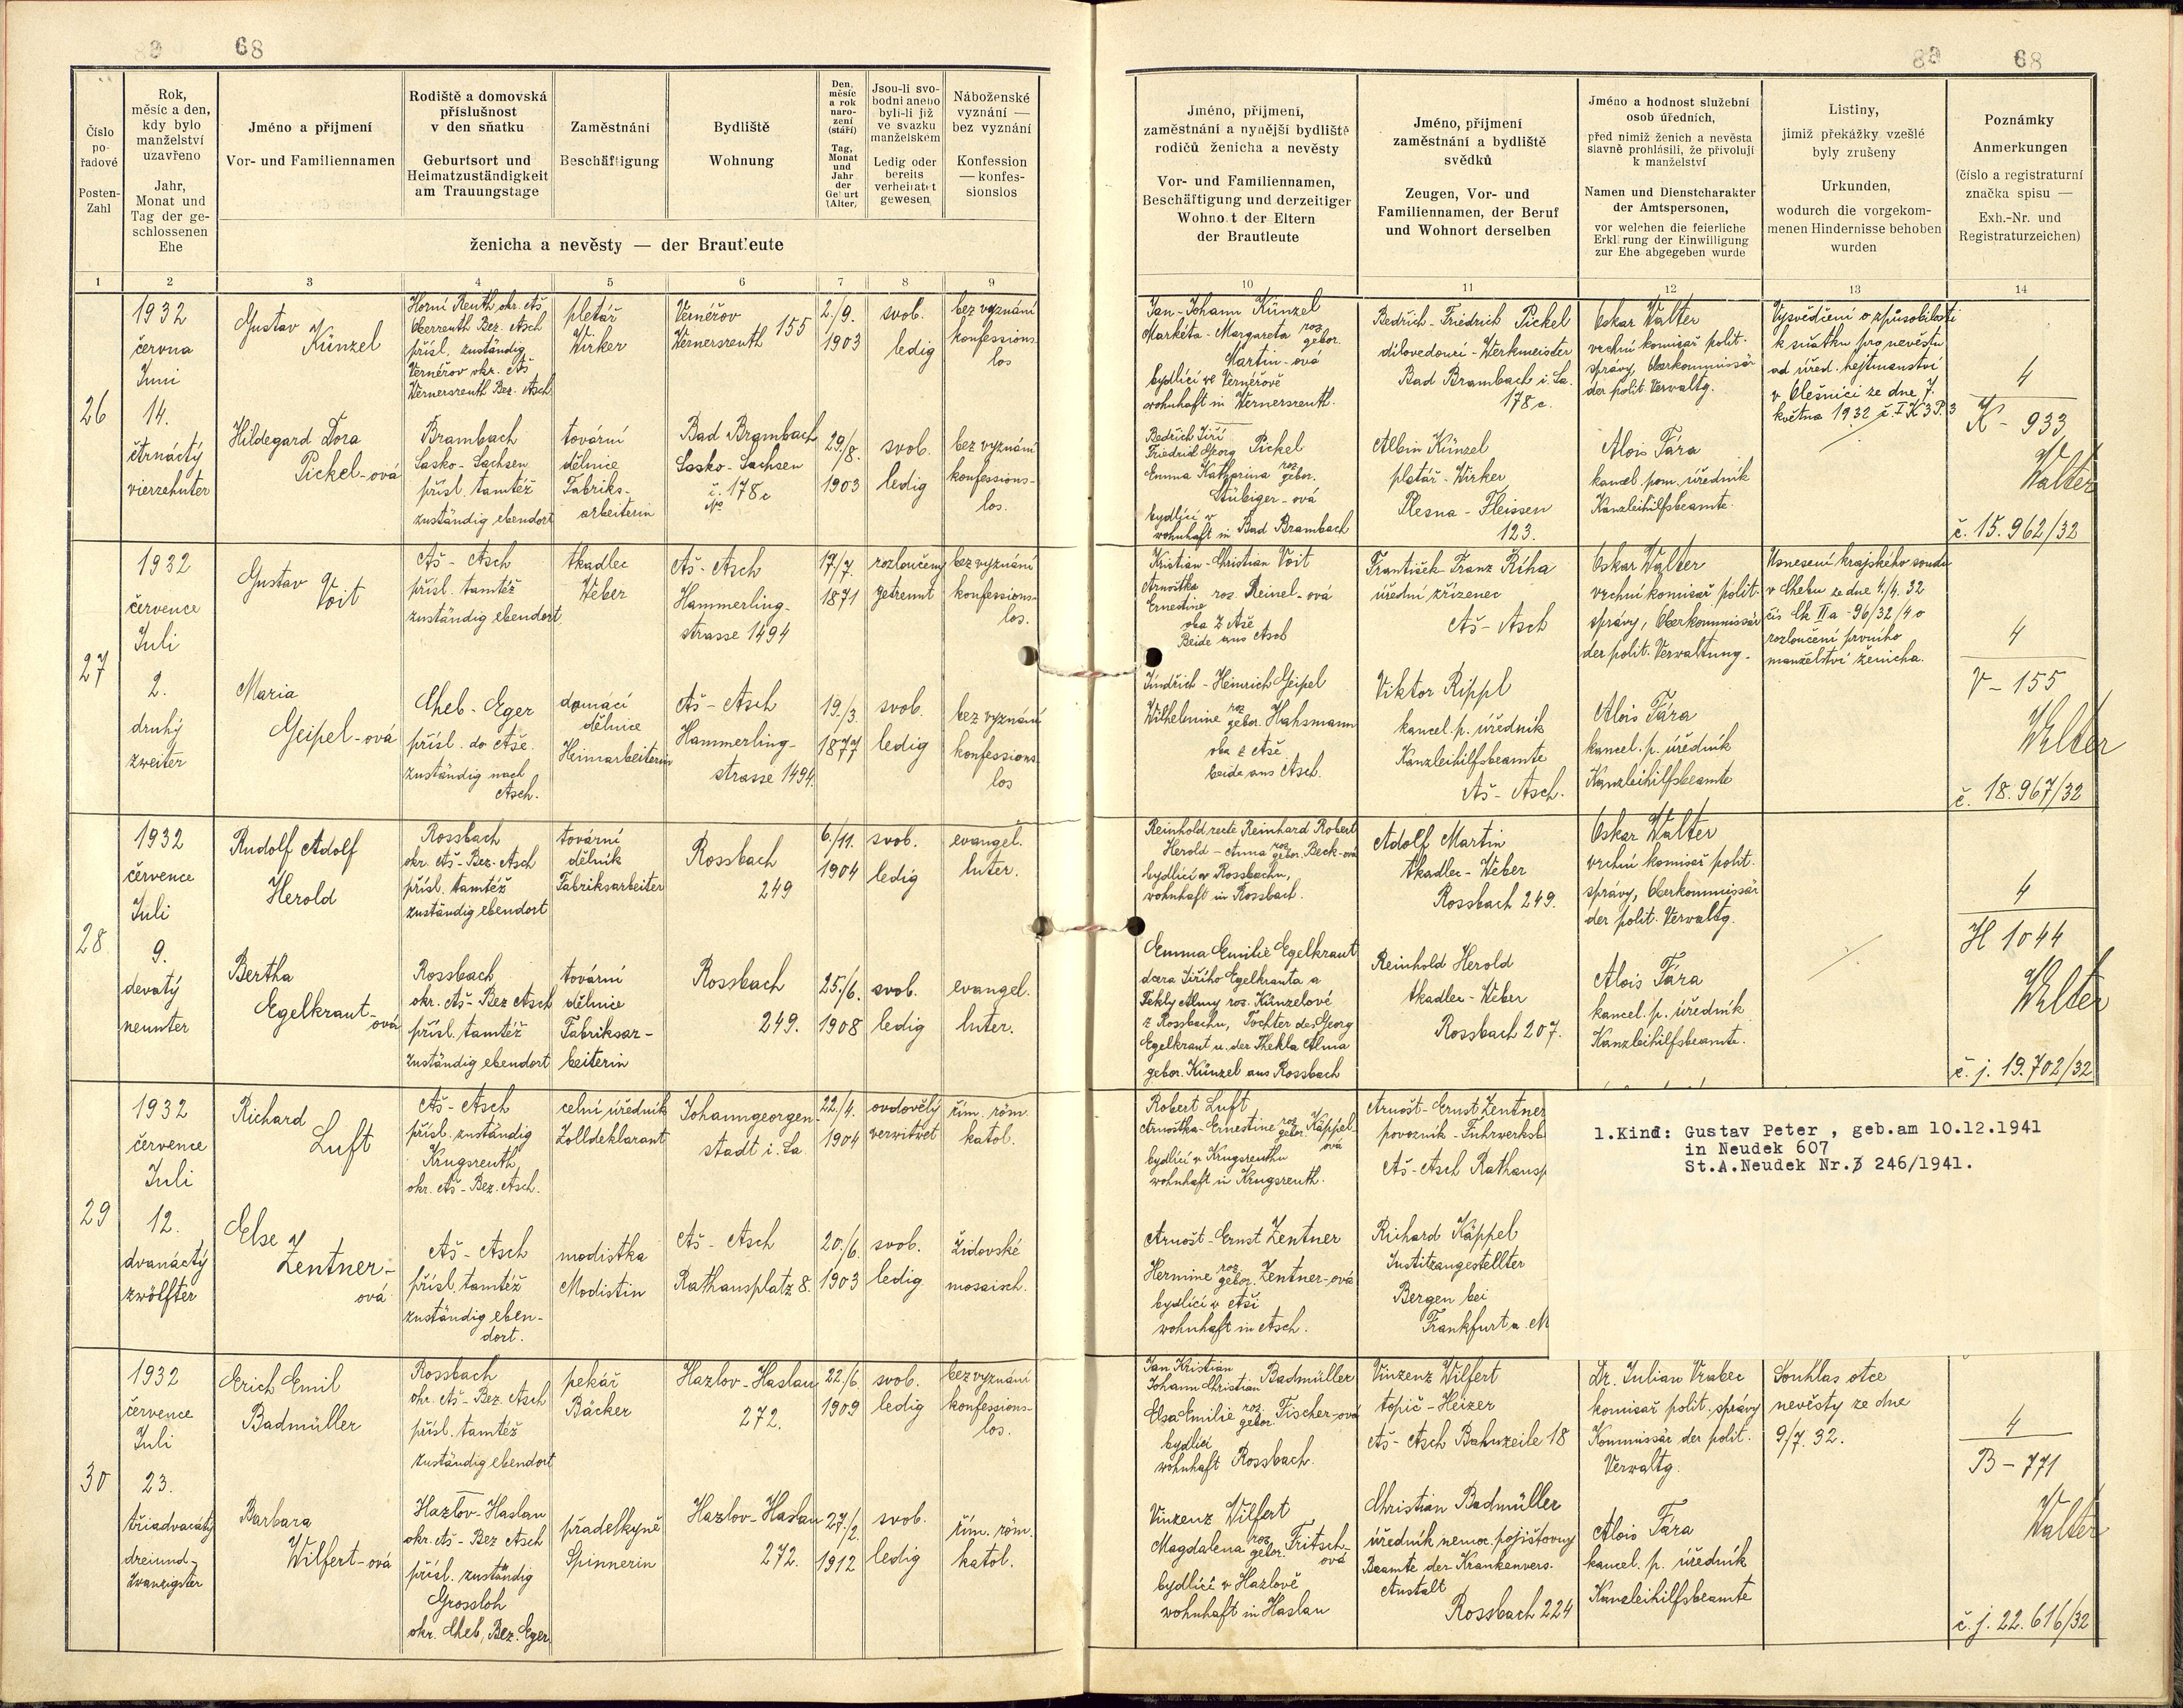 68
Číslo
po-
řadové
Posten-
Zahl
Rok,
měsíc a den,
kdy bylo
manželství
uzavřeno
Jahr,
Monat und
Tag der ge-
schlossenen
Ehe
Jméno a příjmení
Vor- und Familiennamen
Rodiště a domovská
příslušnost
v den sňatku
Geburtsort und
Heimatzuständigkeit
am Trauungstage
Zaměstnání
Beschäftigung
Bydliště
Wohnung
Den,
měsíc
a rok
naro-
zení
(stáří)
Tag,
Monat
und
Jahr
der
Geburt
(Alter)
Jsou-li svo-
bodni aneb
byli-li již
ve svazku
manželském
Ledig oder
bereits
verheiratet
gewesen
Náboženské
vyznání —
bez vyznání
Konfession
— konfes-
sionslos
ženicha a nevěsty — der Brautleute
1 2 3 4 5 6 7 8 9
26
1932
června
Juni
14.
čtrnáctý
vierzehnter
Gustav
Künzel
Horní Reuth okr. Aš
Oberreuth Bez. Asch
přísl. zuständig
Vernéřov okr. Aš
Wernersreuth Bez. Asch
pletář
Wirker
Vernéřov
Wernersreuth 155
2./9.
1903
svob.
ledig
bez vyznání
konfessions-
los
Hildegard Dora
Pickel-ová
Brambach
Sasko-Sachsen
přísl. tamtéž
zuständig ebendort
tovární
dělnice
Fabriks-
arbeiterin
Bad Brambach
Sasko-Sachsen
č. 178c
No
29./8.
1903
svob.
ledig
bez vyznání
konfessions-
los.
27
1932
července
Juli
2.
druhý
zweiter
Gustav
Voit
Aš - Asch
přísl. tamtéž
zuständig ebendort
tkadlec
Weber
Aš - Asch
Hammerling-
strasse 1494
17/7.
1871
rozloučený
getrennt
bez vyznání
konfessions-
los.
Maria
Geipel-ová
Cheb - Eger
přísl. do Aše.
zuständig nach
Asch.
domácí
dělnice
Heimarbeiterin
Aš - Asch
Hammerling-
strasse 1494.
19./3.
1877
svob.
ledig
bez vyznání
konfessions-
los
28
1932
července
Juli
9.
devatý
neunter
Rudolf Adolf
Herold
Rossbach
okr. Aš - Bez. Asch
přísl. tamtéž
zuständig ebendort
tovární
dělník
Fabriksarbeiter
Rossbach
249
6./11.
1904
svob.
ledig
evangel.
luter.
Bertha
Egelkraut-
ová
Rossbach
okr. Aš - Bez Asch
přísl. tamtéž
zuständig ebendort
tovární
dělnice
Fabriksar-
beiterin
Rossbach
249.
25./6.
1908
svob.
ledig
evangel.
luter.
29
1932
července
Juli
12.
dvanáctý
zwölfter
Richard
Luft
Aš - Asch
přísl. zuständig
Krugsreuth
okr. Aš - Bez. Asch.
celní úředník
Zolldeklarant
Johanngeorgen-
stadt i. Sa.
22./4.
1904
ovdovělý
verwitwet
řím. röm.
katol.
Else
Zentner-
ová
Aš - Asch
přísl. tamtéž
zuständig eben-
dort.
modistka
Modistin
Aš - Asch
Rathausplatz 8.
20./6.
1903
svob.
ledig
židovské
mosaisch.
30
1932
července
Juli
23.
třiadvacátý
dreiund-
zwanzigster
Erich Emil
Badmüller
Rossbach
okr. Aš - Bez. Asch
přísl. tamtéž
zuständig ebendort
pekář
Bäcker
Hazlov-Haslau
272.
22./6.
1909
svob.
ledig
bez vyznání
konfessions-
los.
Barbara
Wilfert-ová
Hazlov-Haslau
okr. Aš - Bez Asch
přísl. zuständig
Grossloh
okr. Cheb, Bez. Eger
přadelkyně
Spinnerin
Hazlov-Haslau
272.
27./2.
1912
svob.
ledig
řím. röm.
katol.
68
Jméno, příjmení,
zaměstnání a nynější bydliště
rodičů ženicha a nevěsty
Vor- und Familiennamen,
Beschäftigung und derzeitiger
Wohnort der Eltern
der Brautleute
Jméno, příjmení
zaměstnání a bydliště
svědků
Zeugen, Vor- und
Familiennamen, der Beruf
und Wohnort derselben
Jméno a hodnost služební
osob úředních,
před nimiž ženich a nevěsta
slavně prohlásili, že přivolují
k manželství
Namen und Dienstcharakter
der Amtspersonen,
vor welchen die feierliche
Erklärung der Einwilligung
zur Ehe abgegeben wurde
Listiny,
jimiž překážky vzešlé
byly zrušeny
Urkunden,
wodurch die vorgekom-
menen Hindernisse behoben
wurden
Poznámky
Anmerkungen
(číslo a registraturní
značka spisu —
Exh.-Nr. und
Registraturzeichen)
10 11 12 13 14
Jan-Johann Künzel
Markéta-Margareta roz. gebor.
Martin-ová
bydlící ve Vernéřově
wohnhaft in Wernersreuth.
Bedřich-Friedrich Pickel
dílovedoucí-Werkmeister
Bad Brambach i. Sa.
178c.
Oskar Walter
vrchní komisař polit.
správy, Oberkommissär
der polit. Verwaltg.
Vysvědčení o způsobilosti
k sňatku pro nevěstu
od úřed. hejtmanství
v Olešnici ze dne 7.
května 1932 č. I K 3 P. 3
4
K - 933
Walter
č. 15.962/32
Bedřich Jiří
Friedrich Georg Pickel
Emma Katharina roz. gebor.
Stübiger-ová
bydlící v
wohnhaft in Bad Brambach
Albin Künzel
pletář-Wirker
Plesna-Fleissen
123.
Alois Fára
kancel. pom. úředník
Kanzleihilfsbeamte.
Kristian-Christian Voit
Arnoštka
Ernestine roz. Reinel-ová
oba z Aše
Beide aus Asch
František-Franz Říha
úřední zřízenec
Aš-Asch
Oskar Walter
vrchní komisař polit.
správy, Oberkommissär
der polit. Verwaltung.
Usnesení krajského soudu
v Chebu ze dne 4./4. 32
čís Ck IIa - 96/32/4 o
rozloučení prvního
manželství ženicha.
4
V - 155
Walter
č. 18.967/32
Jindřich-Heinrich Geipel
Wilhelmine roz gebor. Hahsmann
oba z Aše
beide aus Asch.
Viktor Rippl
kancel. p. úředník
Kanzleihilfsbeamte
Aš-Asch.
Alois Fára
kancel. p. úředník
Kanzleihilfsbeamte
Reinhold recte Reinhard Robert
Herold - Anna roz gebor. Beck-ová
bydlící v Rossbachu,
wohnhaft in Rossbach.
Adolf Martin
tkadlec-Weber
Rossbach 249.
Oskar Walter
vrchní komisař polit.
správy, Oberkommissär
der polit. Verwaltg.
4
H 1044
Walter
č. j. 19.702/32
Emma Emilie Egelkraut
dcera Jiřího Egelkrauta a
Tekly Almy roz. Künzelové
z Rossbachu, Tochter des Georg
Egelkraut u. der Thekla Alma
gebor. Künzel aus Rossbach
Reinhold Herold
tkadlec-Weber
Rossbach 207.
Alois Fára
kancel. p. úředník
Kanzleihilfsbeamte.
Robert Luft
Arnoštka-Ernestine roz. gebor. Käppel-
ová
bydlící v Krugsreuthu
wohnhaft in Krugsreuth.
Arnošt-Ernst Zentner
povozník-Fuhrwerksb
Aš-Asch Rathausp
1.Kind: Gustav Peter , geb.am 10.12.1941
in Neudek 607
St.A.Neudek Nr. 246/1941.
Arnošt-Ernst Zentner
Hermine roz. gebor. Zentner-ová
bydlící v Aši
wohnhaft in Asch.
Richard Käppel
Justitzangestellter
Bergen bei
Frankfurt a. M
Jan Kristian
Johann Christian Badmüller
Elsa Emilie roz. gebor. Fischer-ová
bydlící
wohnhaft Rossbach.
Vinzenz Wilfert
topič-Heizer
Aš-Asch Bahnzeile 18
Dr. Julian Vrabec
komisař polit. správy
Kommissär der polit.
Verwaltg.
Souhlas otce
nevěsty ze dne
9/7. 32.
4
B - 771
Walter
č. j. 22.616/32
Vinzenz Wilfert
Magdalena roz. gebor. Fritsch-
ová
bydlící v Hazlově
wohnhaft in Haslau
Christian Badmüller
úředník nemoc. pojišťovny
Beamte der Krankenvers.
Anstalt
Rossbach 224
Alois Fára
kancel. p. úředník
Kanzleihilfsbeamte